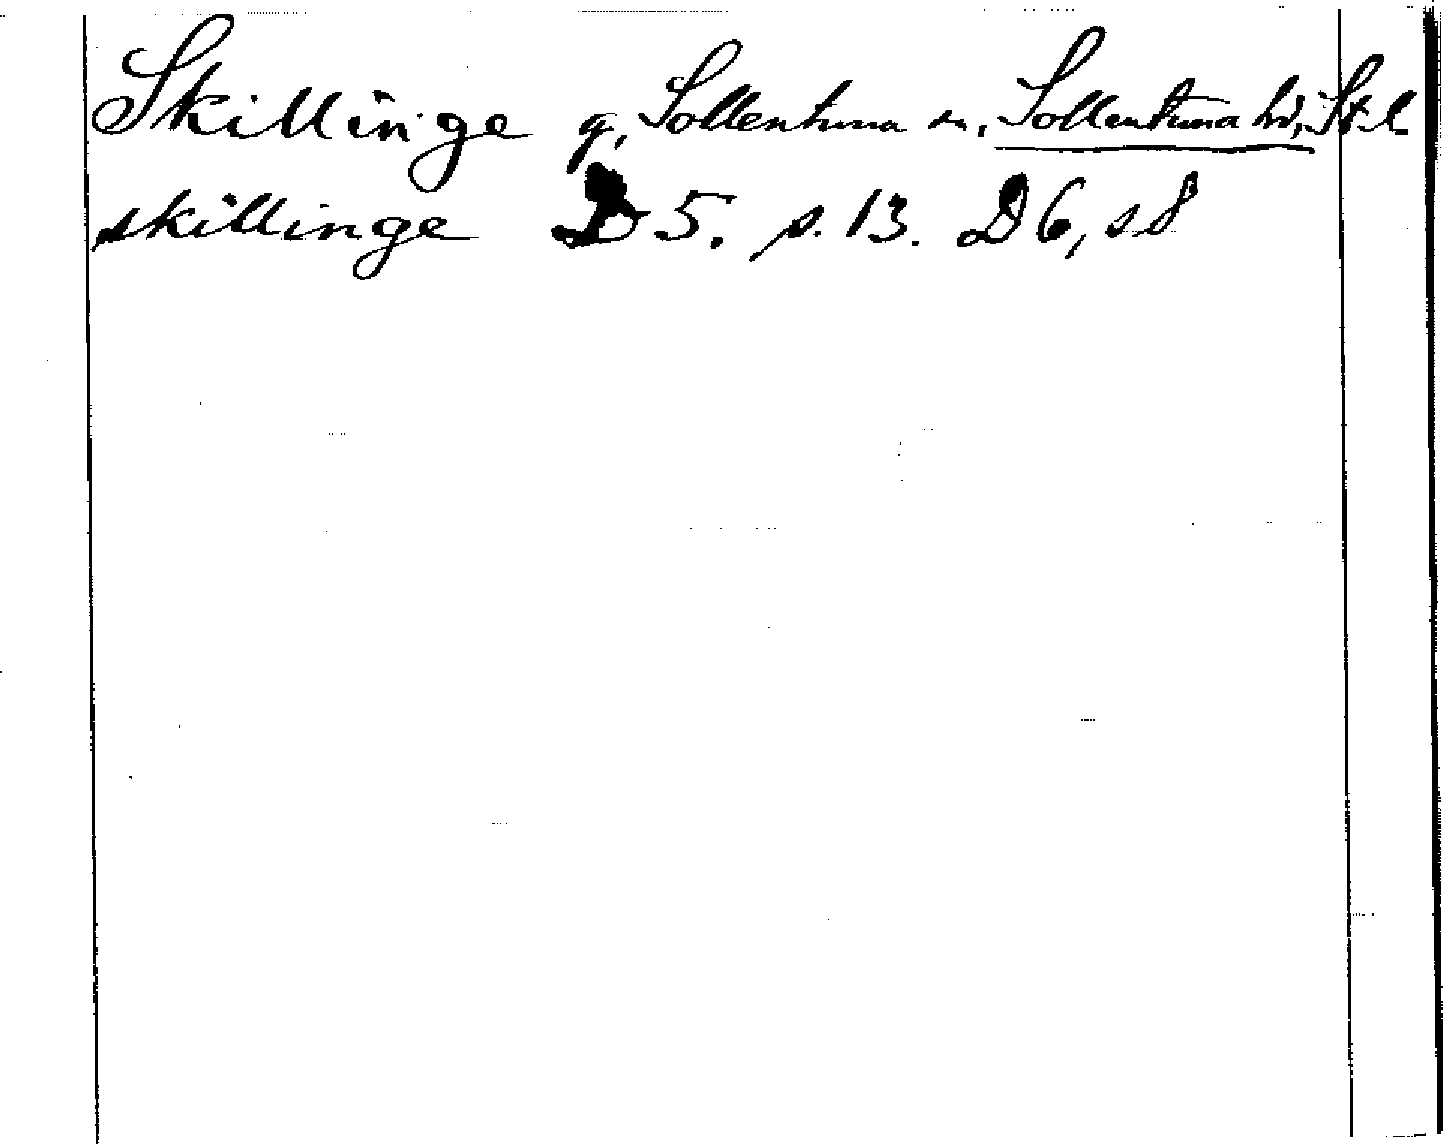 Skillinge g, Sollentuna sn, Sollentuna hd, St. l.
skillinge D 5. s. 13. D 6, s 8